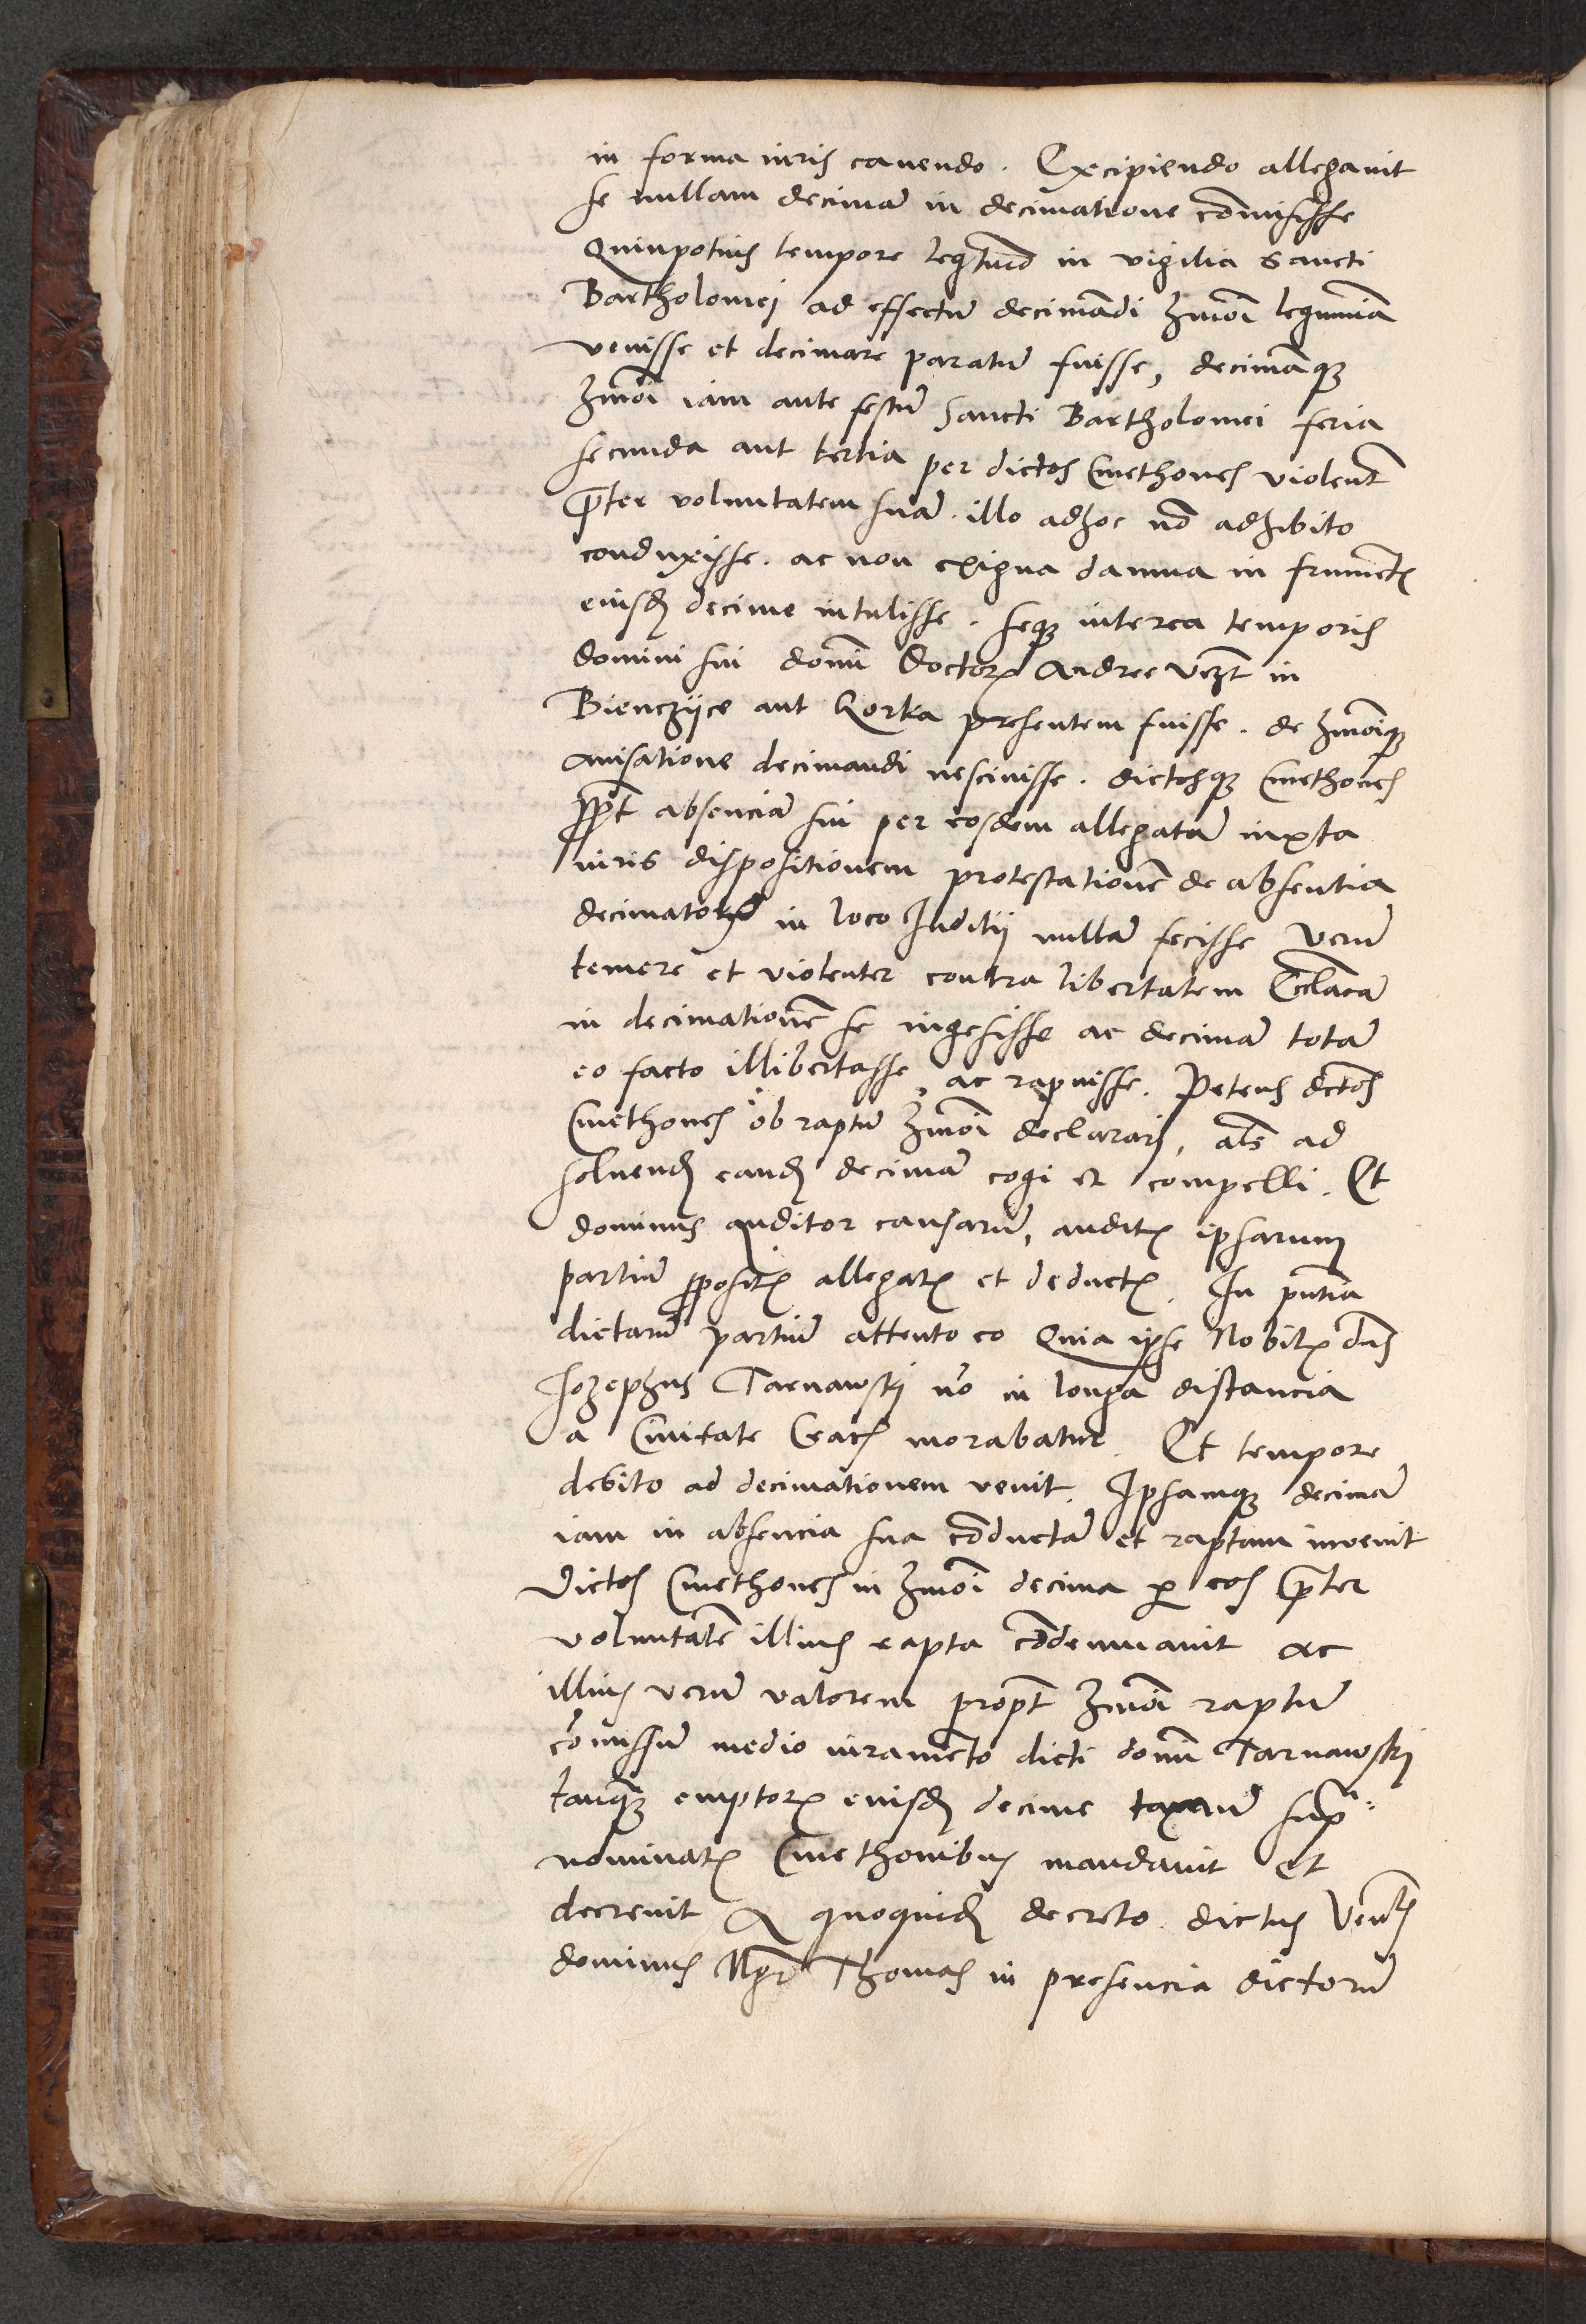 in forma iuris cauendo. Excipiendo allegauit
se nullam decimā in decimatione cōmisisse
Quinpotius tempore legitimo in vigilia Sancti
Bartholomej ad effectū decimādi hmōi legumina
venisse et decimare paratū fuisse, decimāqȝ
hmōi iam ante festū Sancti Bartholomei feria
secunda aut tertia per dictos Cmethones violent
p̄ter voluntatem suā. illo adhoc nō adhibito
conduxisse. ac non exigua damna in frumēt
eiusd decime intulisse. seqȝ interea temporis
domini sui domī Doctor Andree in
Bienczijce aut Gorka presentem fuisse. de hmōiqȝ
auisatione decimandi nesciuisse. dictosqȝ Cmethones
ppt absenciā sui per eosdem allegatā iuxta
iuris dispositionem protestationē de absentia
decimator in loco Juditij nullā fecisse Verū
temere et violenter contra libertatem Ecclīācā
in decimationē se ingesisse ac decimā totā
eo facto illibertasse, ac rapuisse. Petens dctos
Cmethones ob raptū hmōi declararj, als ad
soluend eand decimā cogi et compelli. Et
dominus auditor causarū, audit ipsarum
partiū pposit allegat et deduct. In pntia
dictarū partiū attento eo Quia ipse Nobil dns
Jozephus Tarnawskj nō in longa distancia
a Ciuitate Crac morabatur. Et tempore
debito ad decimationem venit. Ipsamqȝ decimā
iam in absencia sua cōductā et raptam inuenit
Dictos Cmethones in hmōi decima p eos p̄ter
voluntatē illius rapta cōdemnauit ac
illius verū valorem propt hmōi raptū
cōmissū medio iuramēto dicti domī Tarnawskj
tanqȝ emptor eiusd decime taxatū sup
nominat Cmethonibus mandauit et
decreuit A quoquid decreto dictus Venlis
dominus Mgr Thomas in presencia dictorū